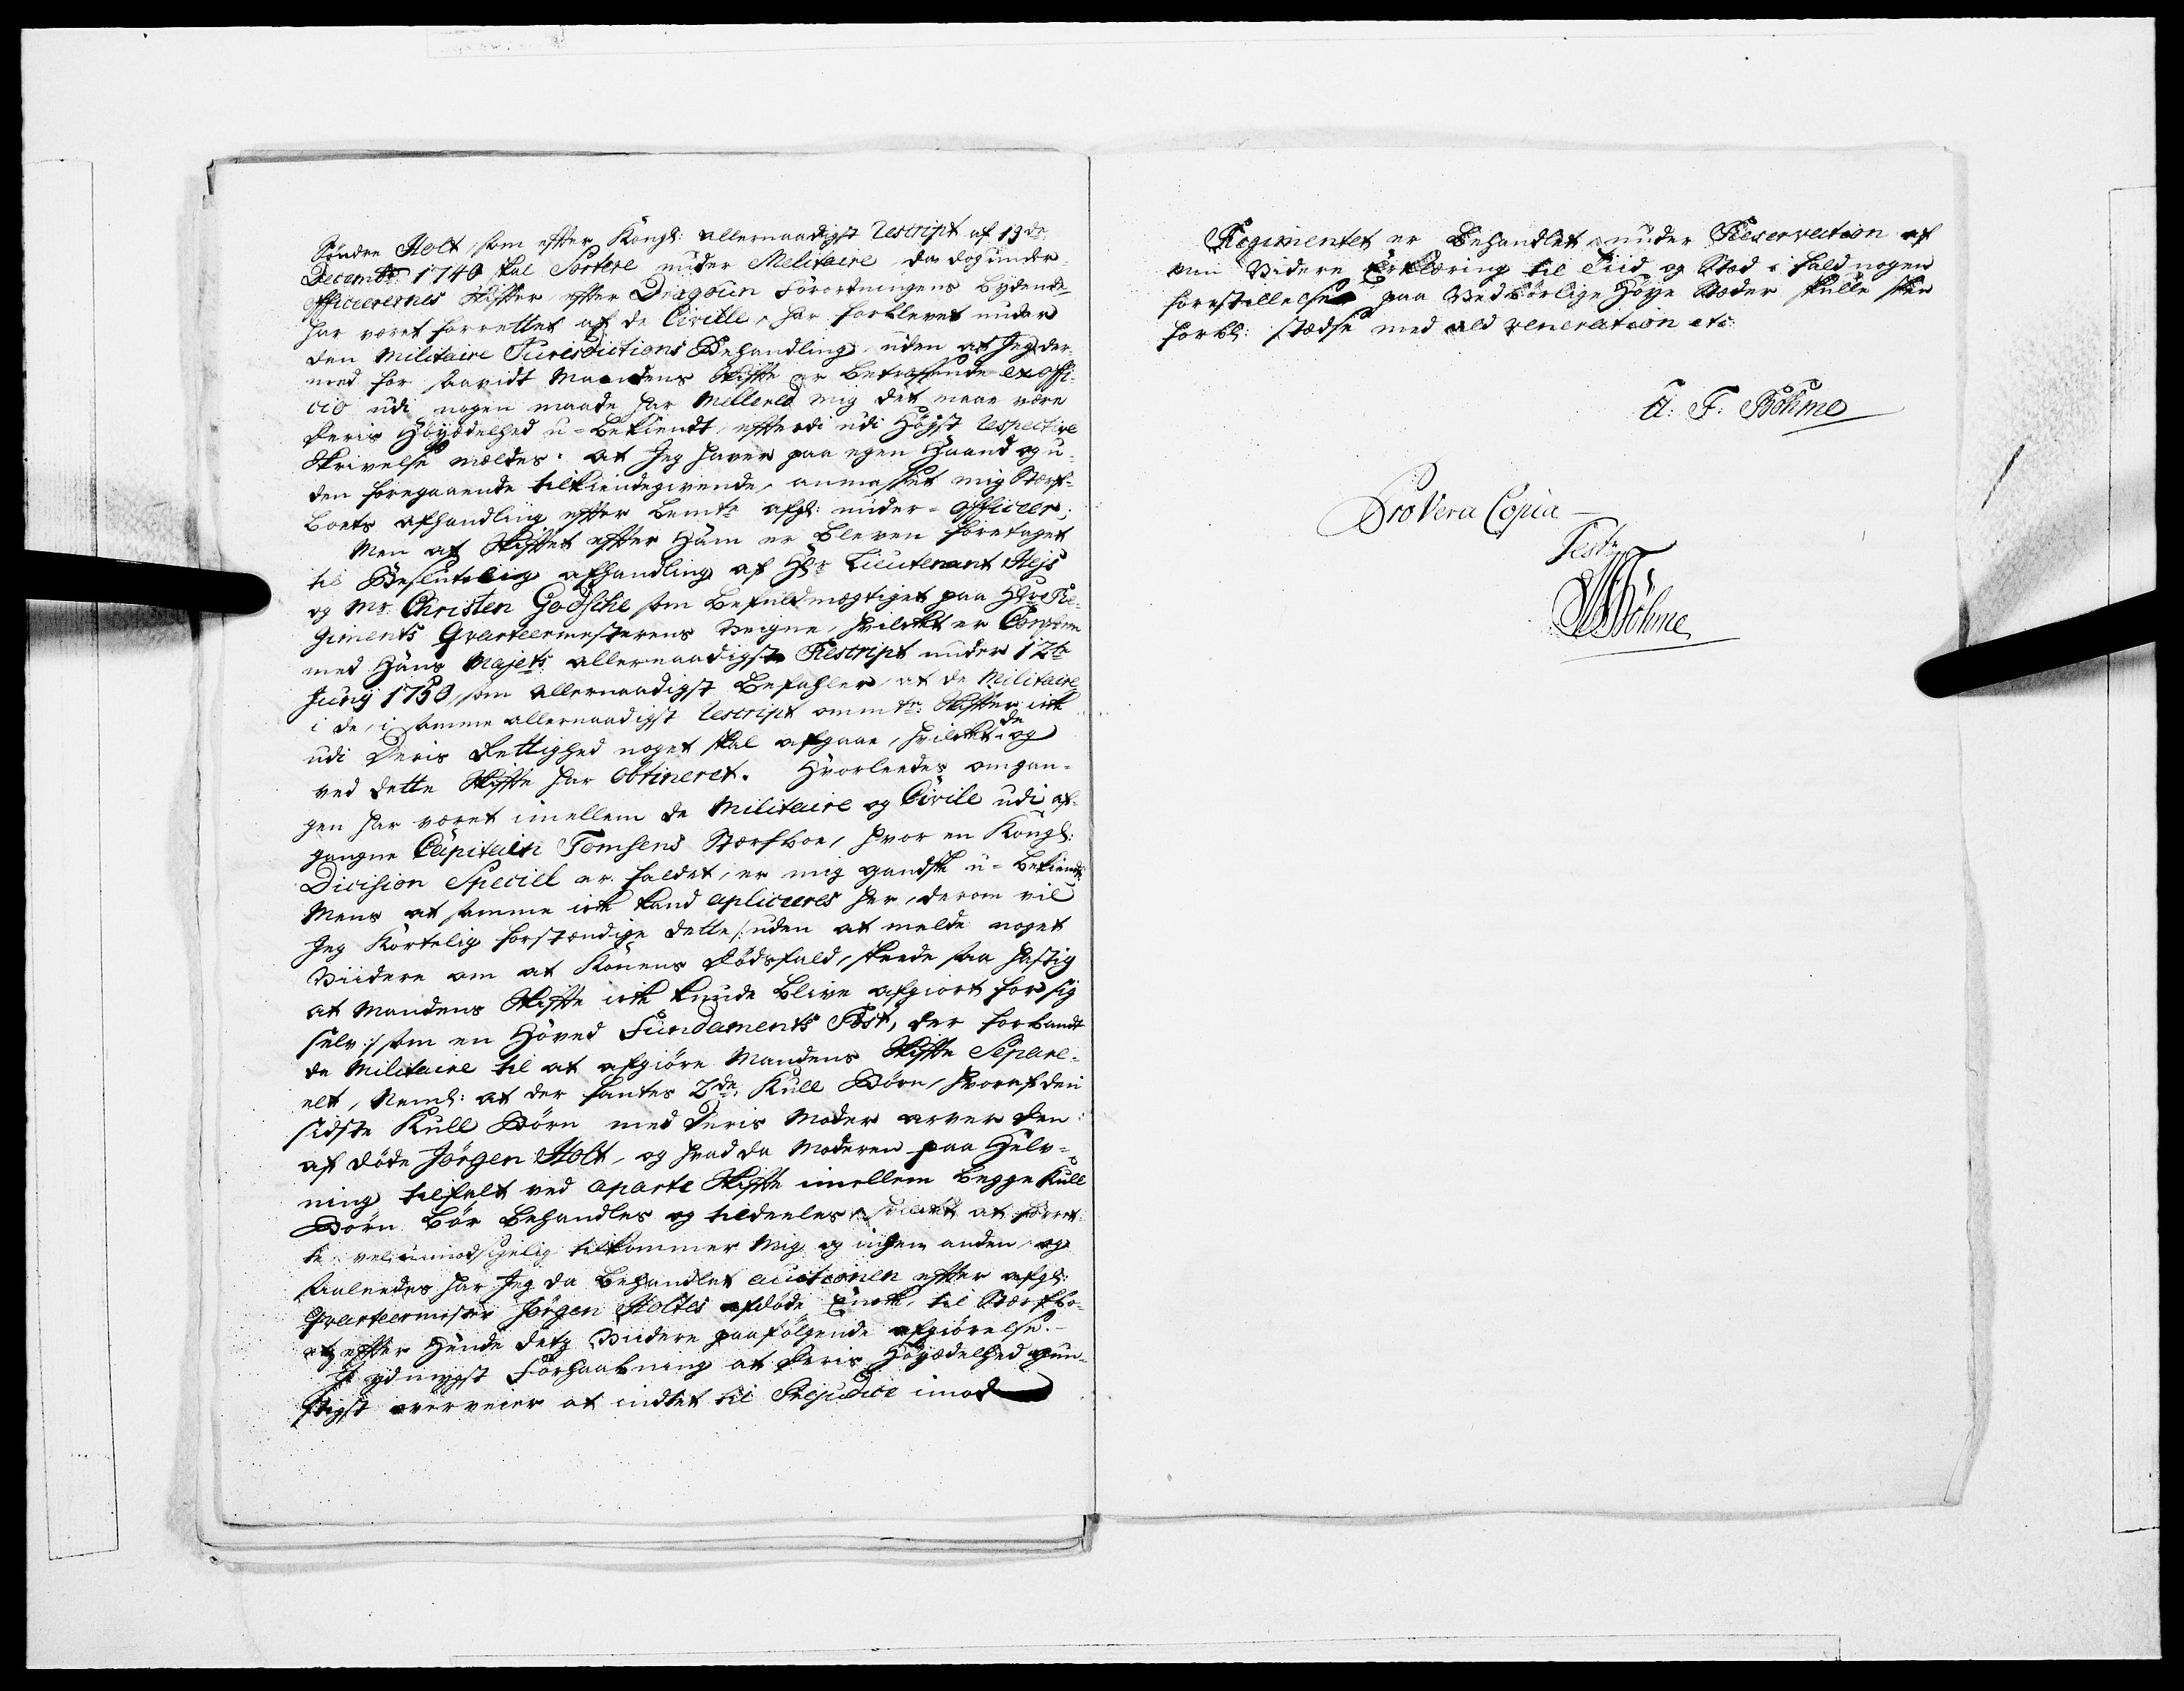 Söndre Holt, som efter Kongl: allernaadigst rescript af 19de
Decembr: 1740 skal Sortere under Melitaire, da dog under
officerernes skifter efter Dragoun Forordningens bydende
har været forrettet af de Civille, har forblevet under
den Militaire Jurisdictions Behandling, uden at Jeg der-
med for saavidt Mandens Skifte er betreffende ex offi-
cio udi nogen maade har Mellered mig det maae være
Deris Höyædelhed u-bekiendt, efterdi udi Högst respective
Skrivelse meldes: at Jeg haver paa egen Haand og u-
den foregaaende tilkiendegivende, anmasset mig Sterf-
boets afhandling efter bemte afgl: under-officeer;
Men at Skiftet efter Ham er bleven foretaget
til Beslutelig afhandling af Hr Lieutenant Hejs
og Mr Christen Godsche som befuldmægtiget paa Hr Re-
giments Qvarteermesterens Veigne, hvilket er Conform
med Hans Mayts allernaadigste Rescript under 12te
Junij 1750, som allernaadigst befahler, at de Militaire
i de, i samme allernaadigst rescript ommte: Skifter ick
udi Deris Rettighed noget skal afgaae, hvilket de og
ved dette Skifte har obtineret. Hvorleedes omgan-
gen har været imellem de Militaire og Civile udi af-
gangne Capitain Tomsens Sterfboe, hvor en Kongl:
Dicision Speciel er faldet, er mig gandske u-bekiendt,
Mens at samme ick kand apliceres her, derom vil
Jeg Kortelig forstændige dette /: uden at melde noget
Viidere om at Konens Dödsfald, skeede saa hastig
at Mandens Skifte ick kunde blive afgiort for sig
selv :/ som en Hoved Fundaments Post, der forbandt
de Militaire til at afgiöre Mandens Skifte Separe-
elt, Neml: at der fantes 2de Kull Börn, hvoraf den
sidste Kull Börn med Deris Moder arver den
af döde Jörgen Holt, og hvad da Moderen paa Helv-
ning tilfalt ved aparte Skifte imellem begge Kull
Börn bör behandles og tildeeles, hvilket at forret-
te vel uimodsigelig tilkommer Mig og ingen anden, og
saaleedes har Jeg da behandlet auctionen efter afgl:
Qvarteermester Jörgen Holtes afdöde Enke, til Sterfbo-
et efter Hende detz Viidere paafölgende afgiörelse.
I ydmygst Forhaabning at Deris Höyædelhed gun-
stigst overveier at indtet til Prejudice imod
Regimentet er behandlet, under Reservation af
min Videre Erklæring til Tiid og Sted i fald nogen
forestillelse paa Vedbörlige Höye Steder skulle skee
forbl: stedse med ald veneration etc:
A: F: Böhme
Pro Vera Copia
Test:
AFBöhme